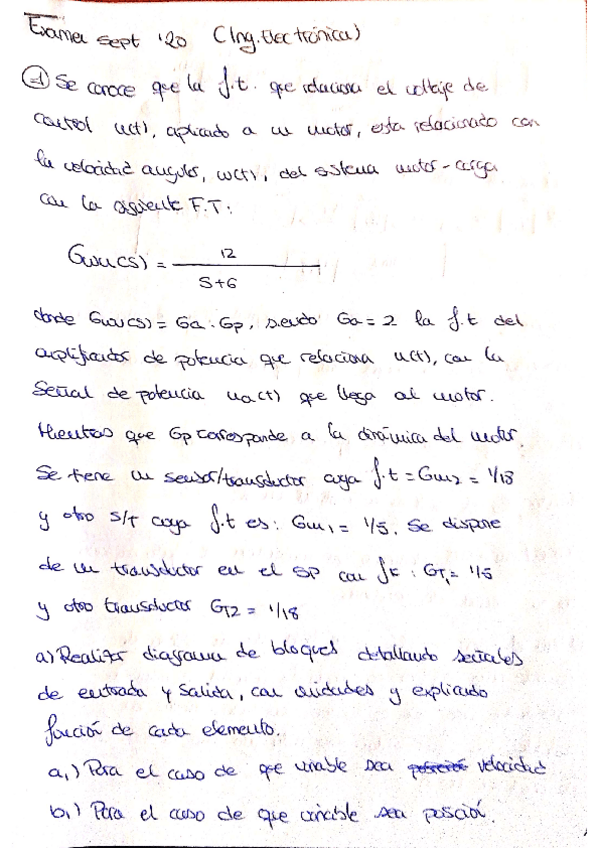 Examen sept '20 (Ing. Electrónica)
① Se conoce que la f.t. que relaciona el voltaje de
control u(t), aplicado a un motor, esta relacionado con
la velocidad angular, w(t), del sistema motor-carga
con la siguiente F.T:
Gwu(s) = 12
S+6
donde Gwu(s) = Ga · Gp, siendo Ga = 2 la f.t del
amplificador de potencia que relaciona u(t), con la
señal de potencia ua(t) que llega al motor.
Mientras que Gp corresponde a la dinámica del motor.
Se tiene un sensor/transductor cuya f.t = Gm2 = 1/18
y otro s/t cuya f.t es: Gm1 = 1/5. Se dispone
de un transductor en el SP con ft: GT1 = 1/5
y otro transductor GT2 = 1/18
a) Realizar diagrama de bloques detallando señales
de entrada y salida, con unidades y explicando
función de cada elemento.
a1) Para el caso de que variable sea posición velocidad
b1) Para el caso de que variable sea posición.